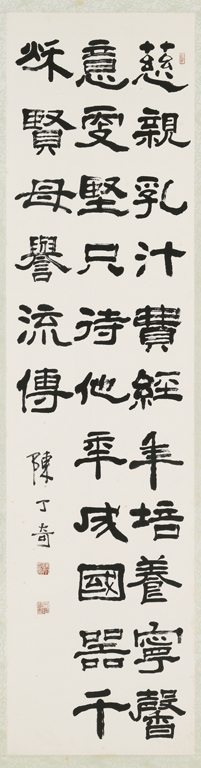 慈親乳汁費經年培養寧馨
意更堅只待他年成國器千
秋賢母譽流傳
陳丁奇